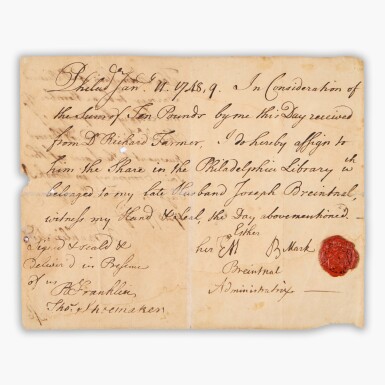 Philad.ᵃ Jan.ʸ 11. 1748,9. In Consideration of
the Sum of Ten Pounds by me this Day received
from Dʳ Richard Farmer, I do hereby assign to
him the Share in the Philadelphia Library wᶜʰ
belonged to my late Husband Joseph Breintnal,
witness my Hand & Seal, the Day abovementioned.
Signed & seald &
Deliverd in Presence
of us
B Franklin
Thoˢ Shoemaker
Esther
her Mark
Breintnal
Administratrix